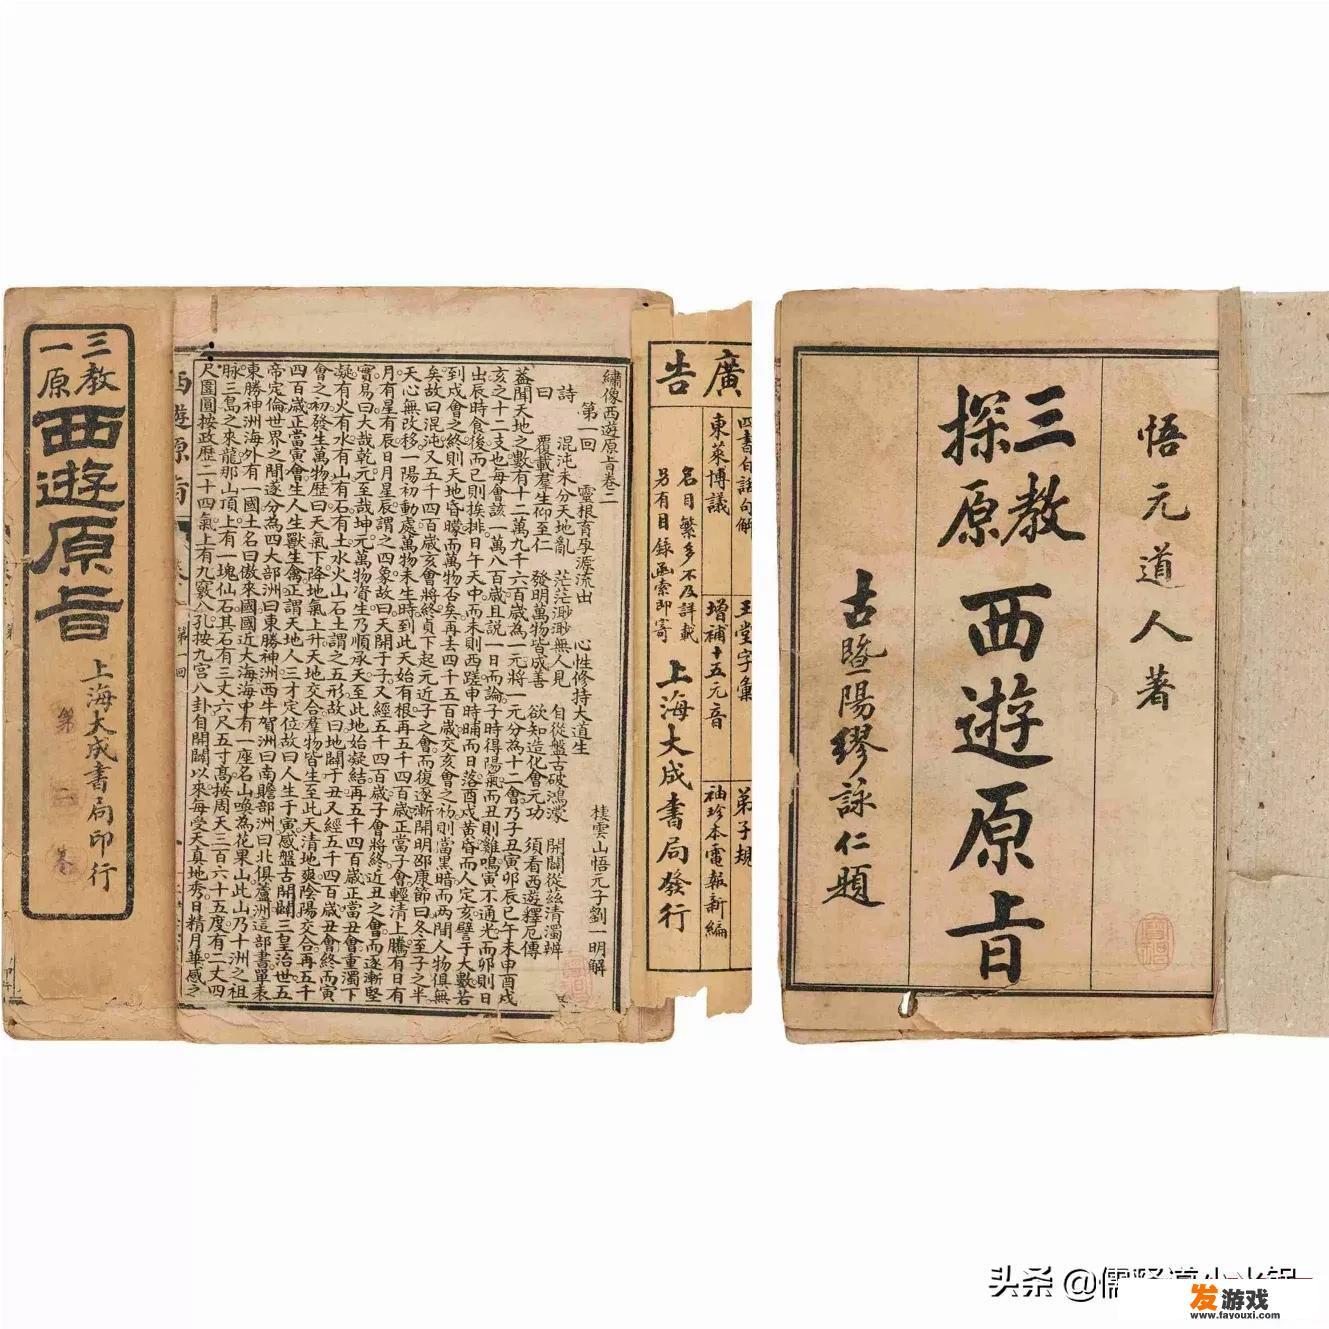 三教
一原
西遊原旨
上海大成書局印行
第二卷
繡像西遊原旨卷二
第一回 靈根育孕源流出 心性修持大道生
棲雲山悟元子劉一明解
詩曰
混沌未分天地亂 茫茫渺渺無人見 自從盤古破鴻濛 開闢從茲清濁辨
覆載羣生仰至仁 發明萬物皆成善 欲知造化會元功 須看西遊釋厄傳
蓋聞天地之數有十二萬九千六百歲為一元將一元分為十二會乃子丑寅卯辰巳午未申酉戌
亥之十二支也每會該一萬八百歲且說一日而論子時得陽氣而丑則雞鳴寅不通光而卯則日
出辰時食後而巳則挨排日午天中而未則西蹉申時晡而日落酉戌黃昏而人定亥譬于大數若
到戌會之終則天地昏曚而萬物否矣再去四千五百歲交亥會之初則當黑暗而兩間人物俱無
矣故曰混沌又五千四百歲亥會將終貞下起元近子之會而復逐漸開明邵康節曰冬至子之半
天心無改移一陽初動處萬物未生時到此天始有根再五千四百歲正當子會輕清上騰有日有
月有星有辰日月星辰謂之四象故曰天開于子又經五千四百歲子會將終近丑之會而逐漸堅
實易曰大哉乾元至哉坤元萬物資生乃順承天至此地始凝結再五千四百歲正當丑會重濁下
凝有火有水有山有石有土水火山石土謂之五形故曰地闢于丑又經五千四百歲丑會終而寅
會之初發生萬物歷曰天氣下降地氣上升天地交合羣物皆生至此天清地爽陰陽交合再五千
四百歲正當寅會生人生獸生禽正謂天地人三才定位故曰人生于寅感盤古開闢三皇治世五
帝定倫世界之間遂分為四大部洲曰東勝神洲西牛賀洲曰南贍部洲曰北俱蘆洲這部書單表
東勝神洲海外有一國土名曰傲來國國近大海海中有一座名山喚為花果山此山乃十洲之祖
脉三島之來龍那山頂上有一塊仙石其石有三丈六尺五寸高按周天三百六十五度有二丈四
尺圍圓按政歷二十四氣上有九竅八孔按九宮八卦自開闢以來每受天真地秀日精月華感之
西遊原旨
第一回
廣告
四書白話句解 玉堂字彙 弟子規
東萊博議 增補十五元音 袖珍本電報新編
名目繁多不及詳載
另有目錄函索即寄
上海大成書局發行
悟元道人著
三教
探原
西遊原旨
古暨陽繆詠仁題
头条 @儒释道小火锅
发游戏
www.fayouxi.com